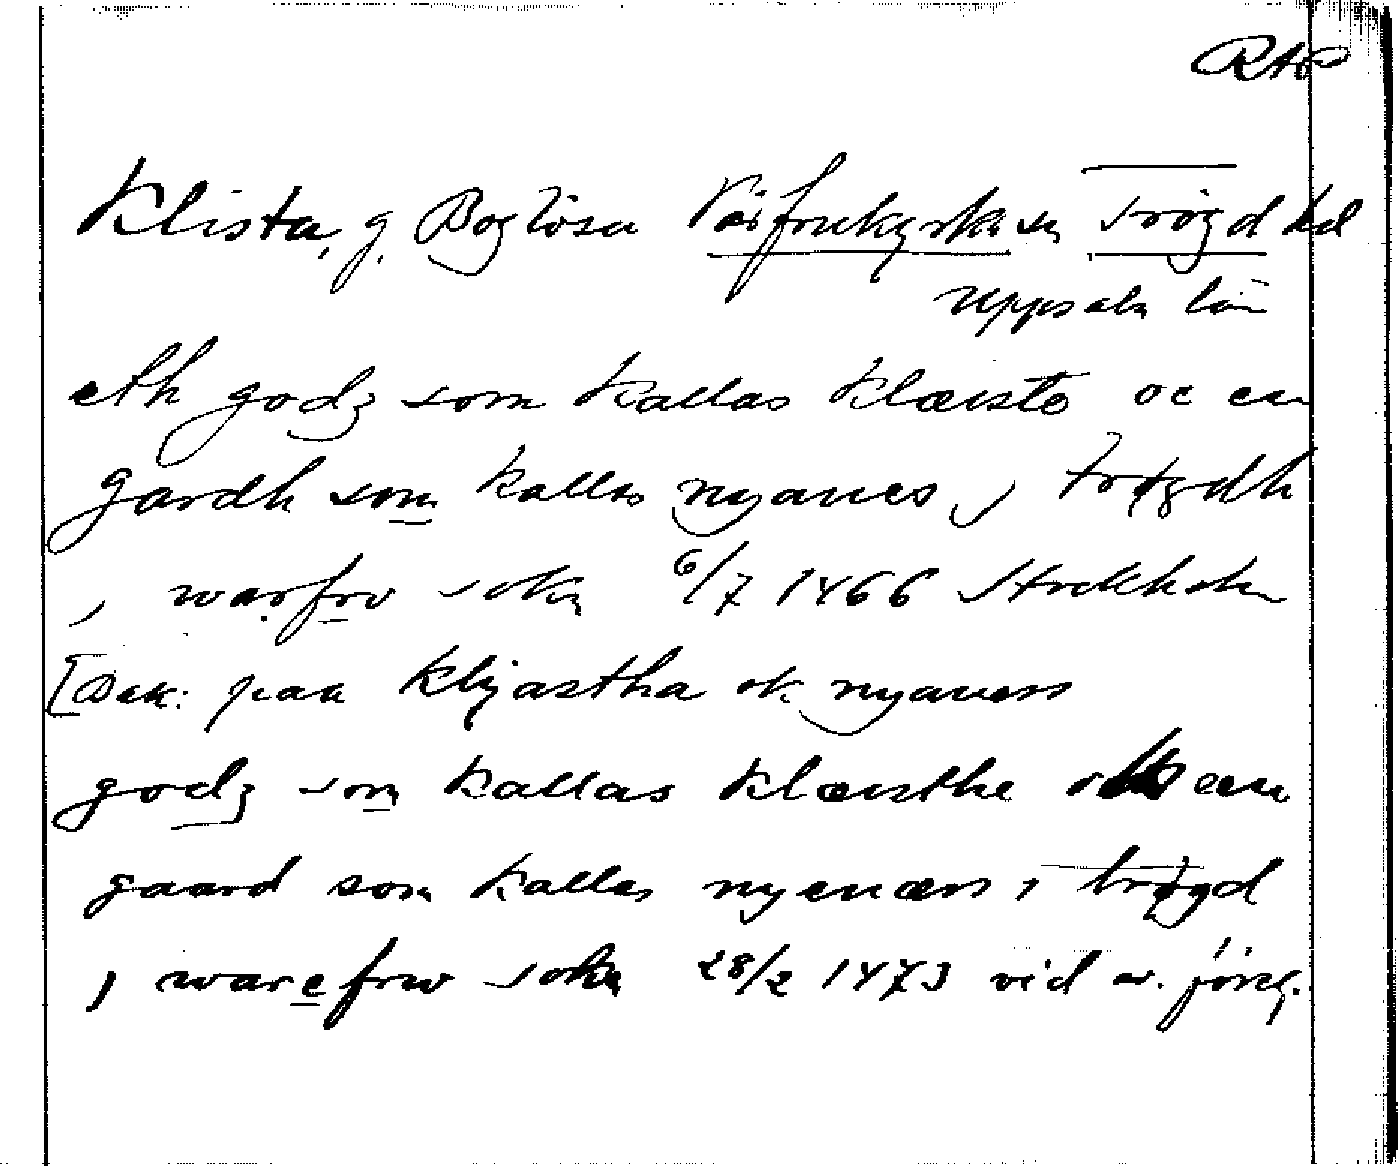 RAP
Klista, g. Boglösa Vårfrukyrka sn Trögd hd
Uppsala län
eth godz som kallas klæiste oc en
gardh som kallas nyanes j trøgdh
j warfrv sokn 6/7 1466 Stockholm
[Bak: paa klijastha ok nyaness
godz som kallas klæisthe ok een
gaard som kallas nyenæss i trøgd
j warefrw sokn 28/2 1473 vid